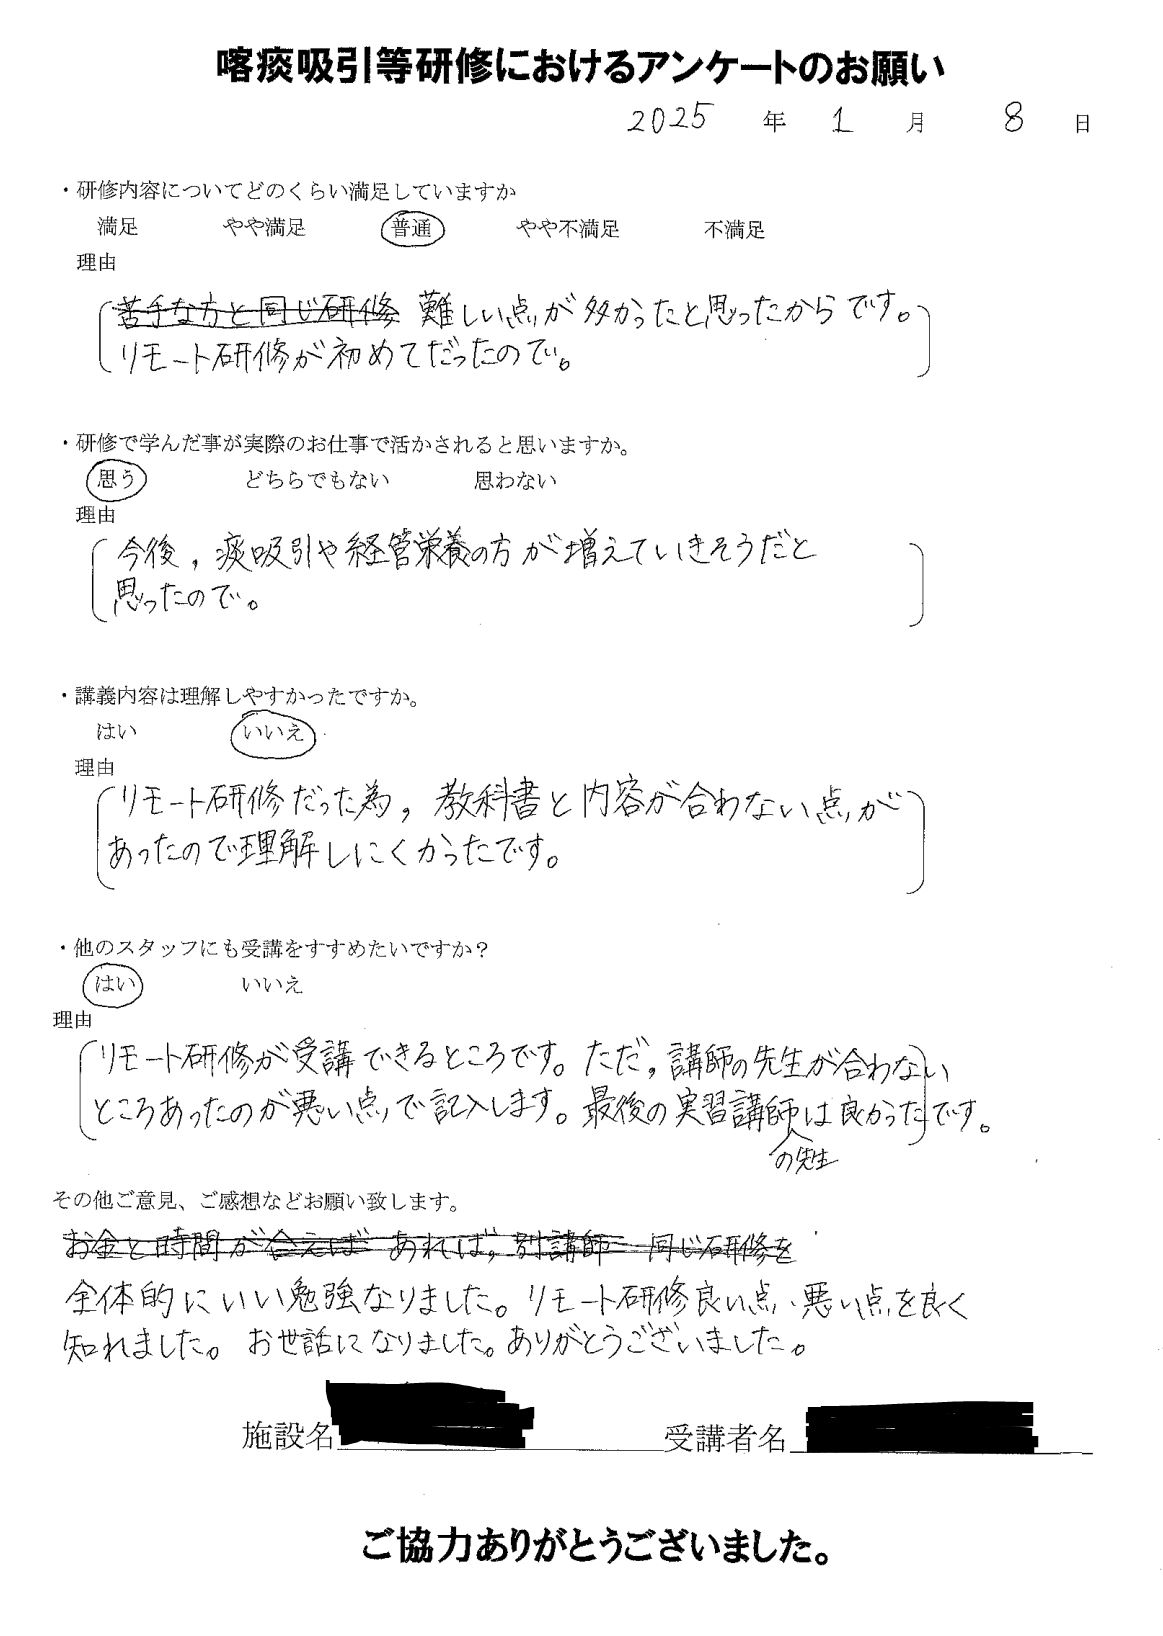 喀痰吸引等研修におけるアンケートのお願い
2025 年 1 月 8 日
・研修内容についてどのくらい満足していますか
満足 やや満足 普通 やや不満足 不満足
理由
苦手な方と同じ研修 難しい点が多かったと思ったからです。
リモート研修が初めてだったので。
・研修で学んだ事が実際のお仕事で活かされると思いますか。
思う どちらでもない 思わない
理由
今後,痰吸引や経管栄養の方が増えていきそうだと
思ったので。
・講義内容は理解しやすかったですか。
はい いいえ
理由
リモート研修だった為,教科書と内容が合わない点が
あったので理解しにくかったです。
・他のスタッフにも受講をすすめたいですか?
はい いいえ
理由
リモート研修が受講できるところです。ただ,講師の先生が合わない
ところあったのが悪い点で記入します。最後の実習講師は良かったです。
の先生
その他ご意見、ご感想などお願い致します。
お金と時間が合えば あれば,別講師 同じ研修を
全体的にいい勉強なりました。リモート研修良い点、悪い点を良く
知れました。お世話になりました。ありがとうございました。
施設名 受講者名
ご協力ありがとうございました。